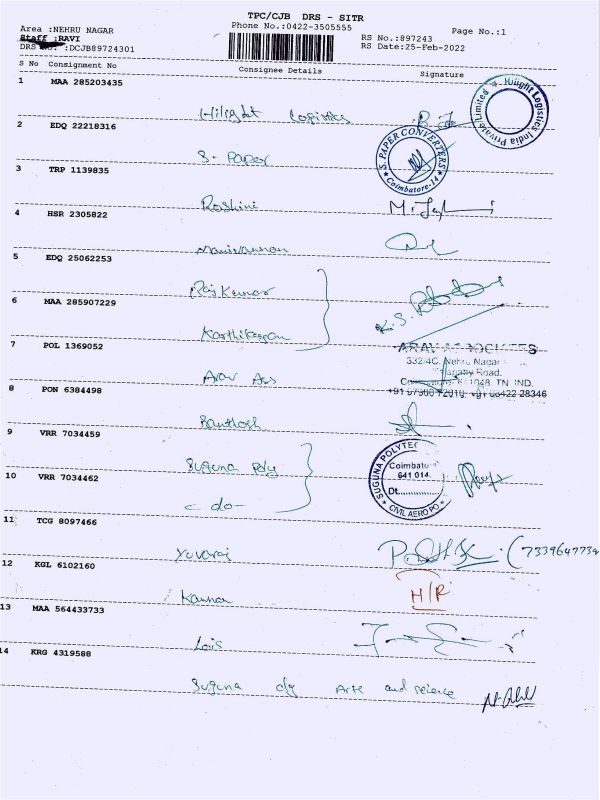 TPC/CJB DRS - SITR
Area :NEHRU NAGAR
Phone No.:0422-3505555
Page No.:1
Staff :RAVI
RS No.:897243
DRS No. :DCJB89724301
RS Date:25-Feb-2022
S No Consignment No Consignee Details Signature
1 MAA 285203435
Hilight Logistics
Hilight Logistics India Private Limited
2 EDQ 22218316
S. Paper
S. PAPER CONVERTERS
Coimbatore-14
3 TRP 1139835
Roshini
4 HSR 2305822
Manivannan
5 EDQ 25062253
Rajkumar
6 MAA 285907229
Karthikeyan
7 POL 1369052
Arav Ass
ARAV ASSOCIATES
332/4C, Nehru Nagar
Road,
TN, IND.
8 PON 6384498
Santhosh
9 VRR 7034459
Suguna Poly
SUGUNA POLYTEC
Coimbato
641 014
Dt.
CIVIL AERO PO
10 VRR 7034462
- do -
11 TCG 8097466
Yuvaraj
12 KGL 6102160
Kannan
H/R
13 MAA 564433733
Lois
14 KRG 4319588
Suguna clg Arts and science